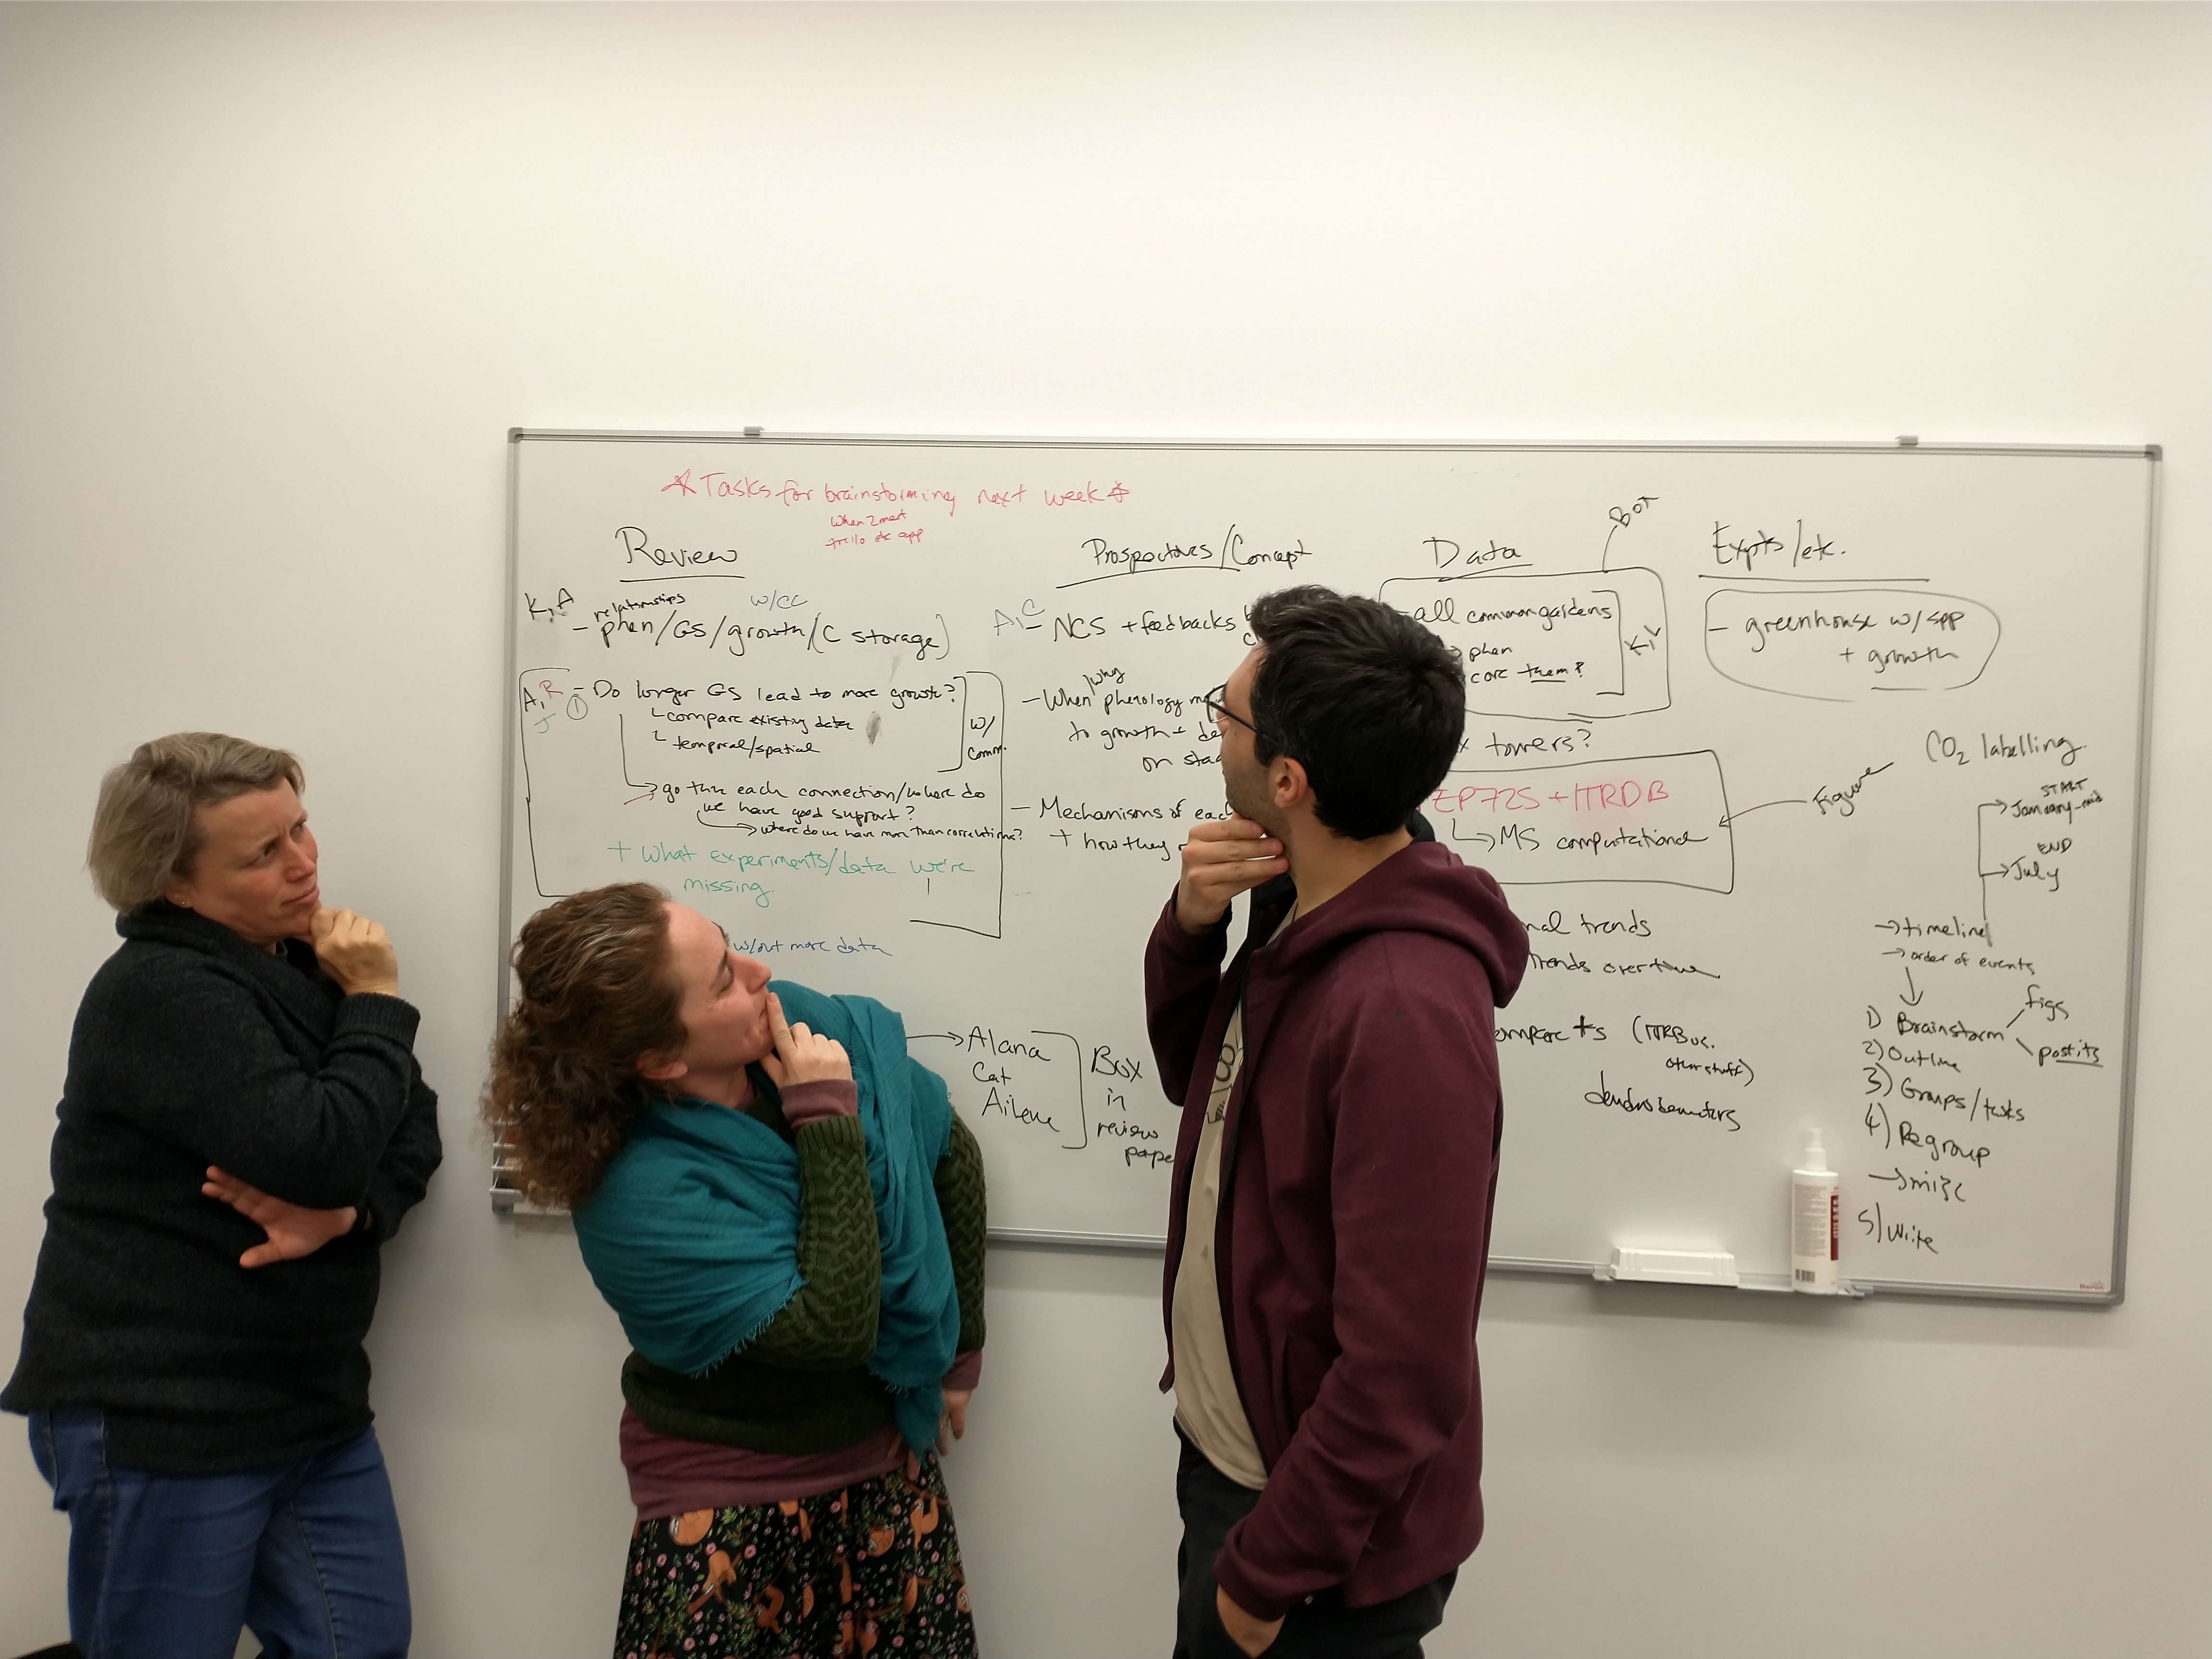 * Tasks for brainstorming next week *
When2meet
trello app
Review
K, A
relationships
w/CC
- phen/GS/growth/(C storage)
A, R
J
① - Do longer GS lead to more growth?
compare existing data
temporal/spatial
w/
comm.
go thru each connection/where do
we have good support?
where do we have more than correlations?
+ what experiments/data we're
missing.
w/out more data
Alana
Cat
Ailene
Box
in
review
pape
/Concept
A, C
- NCS + feedbacks
why
- When phenology
to growth +
on
- Mechanisms of eac
+ how they
Data
BOT
all common gardens
phen
core them?
towers?
+ ITRDB
MS computational
Figure
nal trends
trends over time
other stuff)
Expts/etc.
- greenhouse w/ spp
+ growth
CO2 labelling
START
January-mid
END
July
→ timeline
→ order of events
1) Brainstorm
figs
postits
2) Outline
3) Groups/tasks
4) Regroup
5) Write